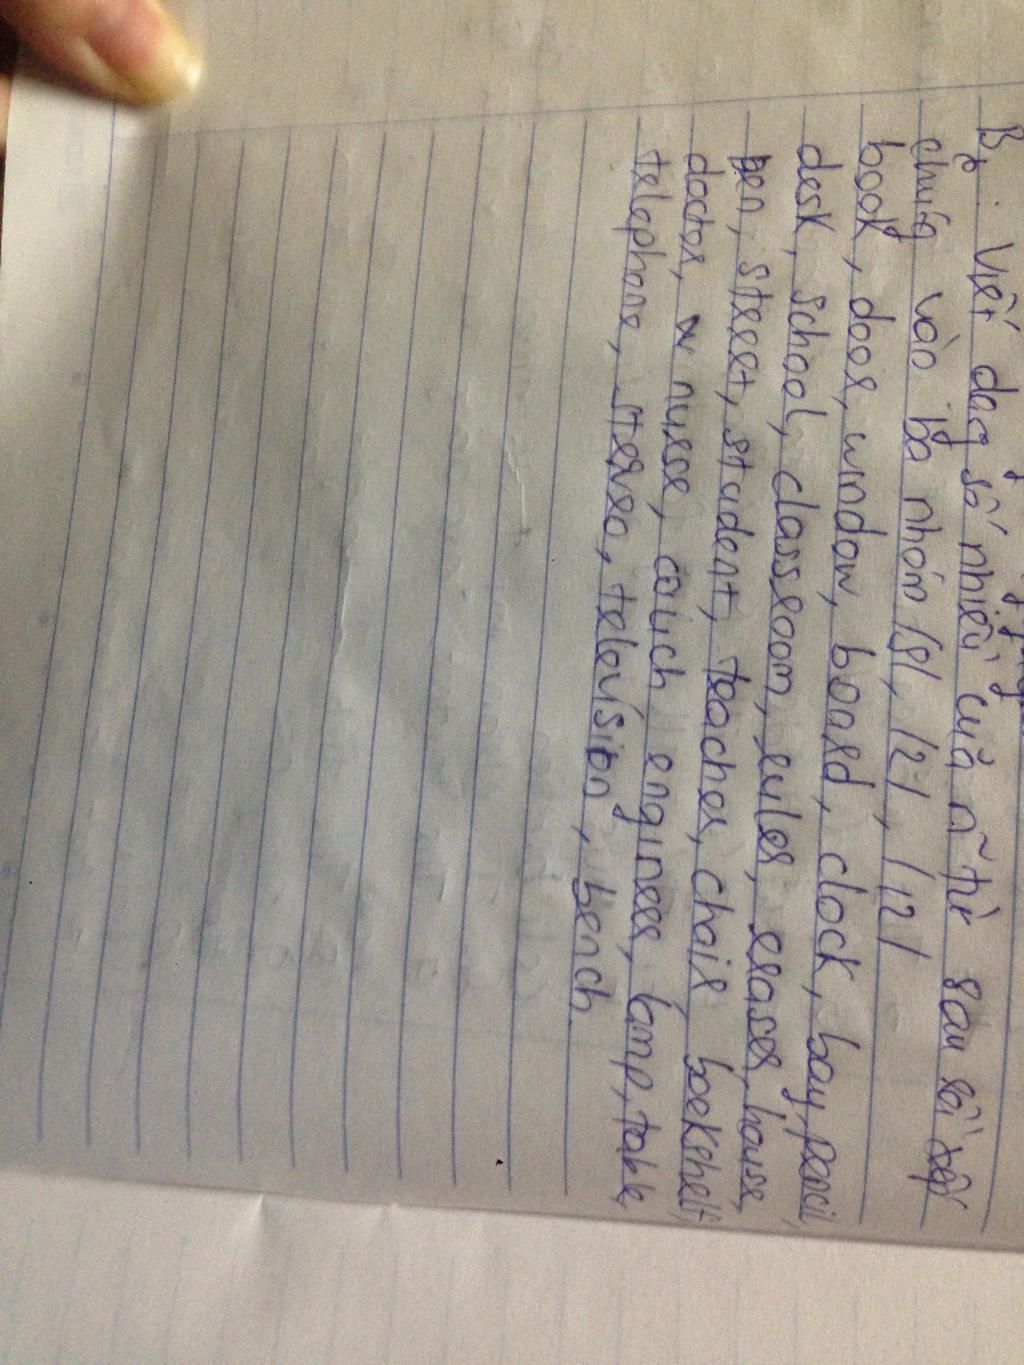 B, : Viết dạng số nhiều của n~ từ sau rồi xếp
chúng vào ba nhóm /s/, /z/, /iz/
book, door, window, board, clock, bay, pencil,
desk, school, classroom, ruler, eraser, house,
pen, street, student, teacher, chair, bookshelf,
doctor, nurse, couch, engineer, lamp, table,
telephone, stereo, television, bench.